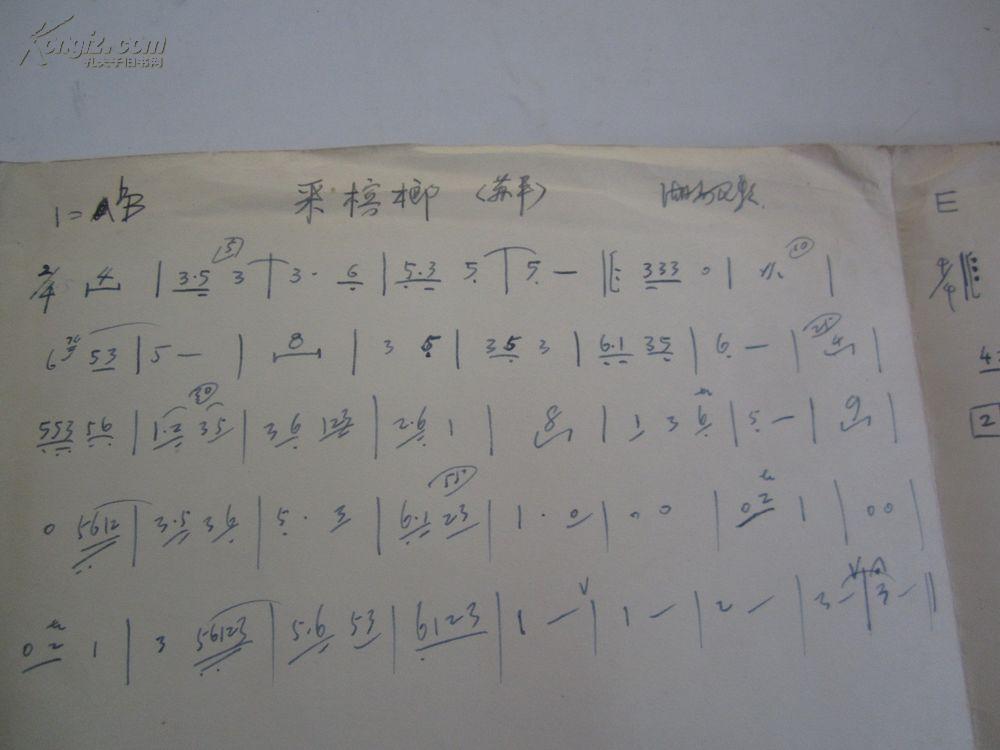 Kongfz.com
孔夫子旧书网
1=♭B 采槟榔 (苏平) 湖南民歌 E
2/4 4 | 3·5 3 | 3· 6 | 5·3 5 | 5 — ‖: 333 0 | 〃 | 4/4 ‖:
6 53 | 5 — | 8 | 3 5 | 35 3 | 6·1 35 | 6 — | 4 |
553 56 | 1·2 35 | 36 123 | 2·6 1 | 8 | 1 3 6 | 5 — | 9 | 2
0 5612 | 3·5 36 | 5· 3 | 6·1 23 | 1· 0 | 00 | 02 1 | 00 |
02 1 | 3 56123 | 5·6 53 | 6123 | 1 — | 1 — | 2 — | 3 — | 3 — ‖